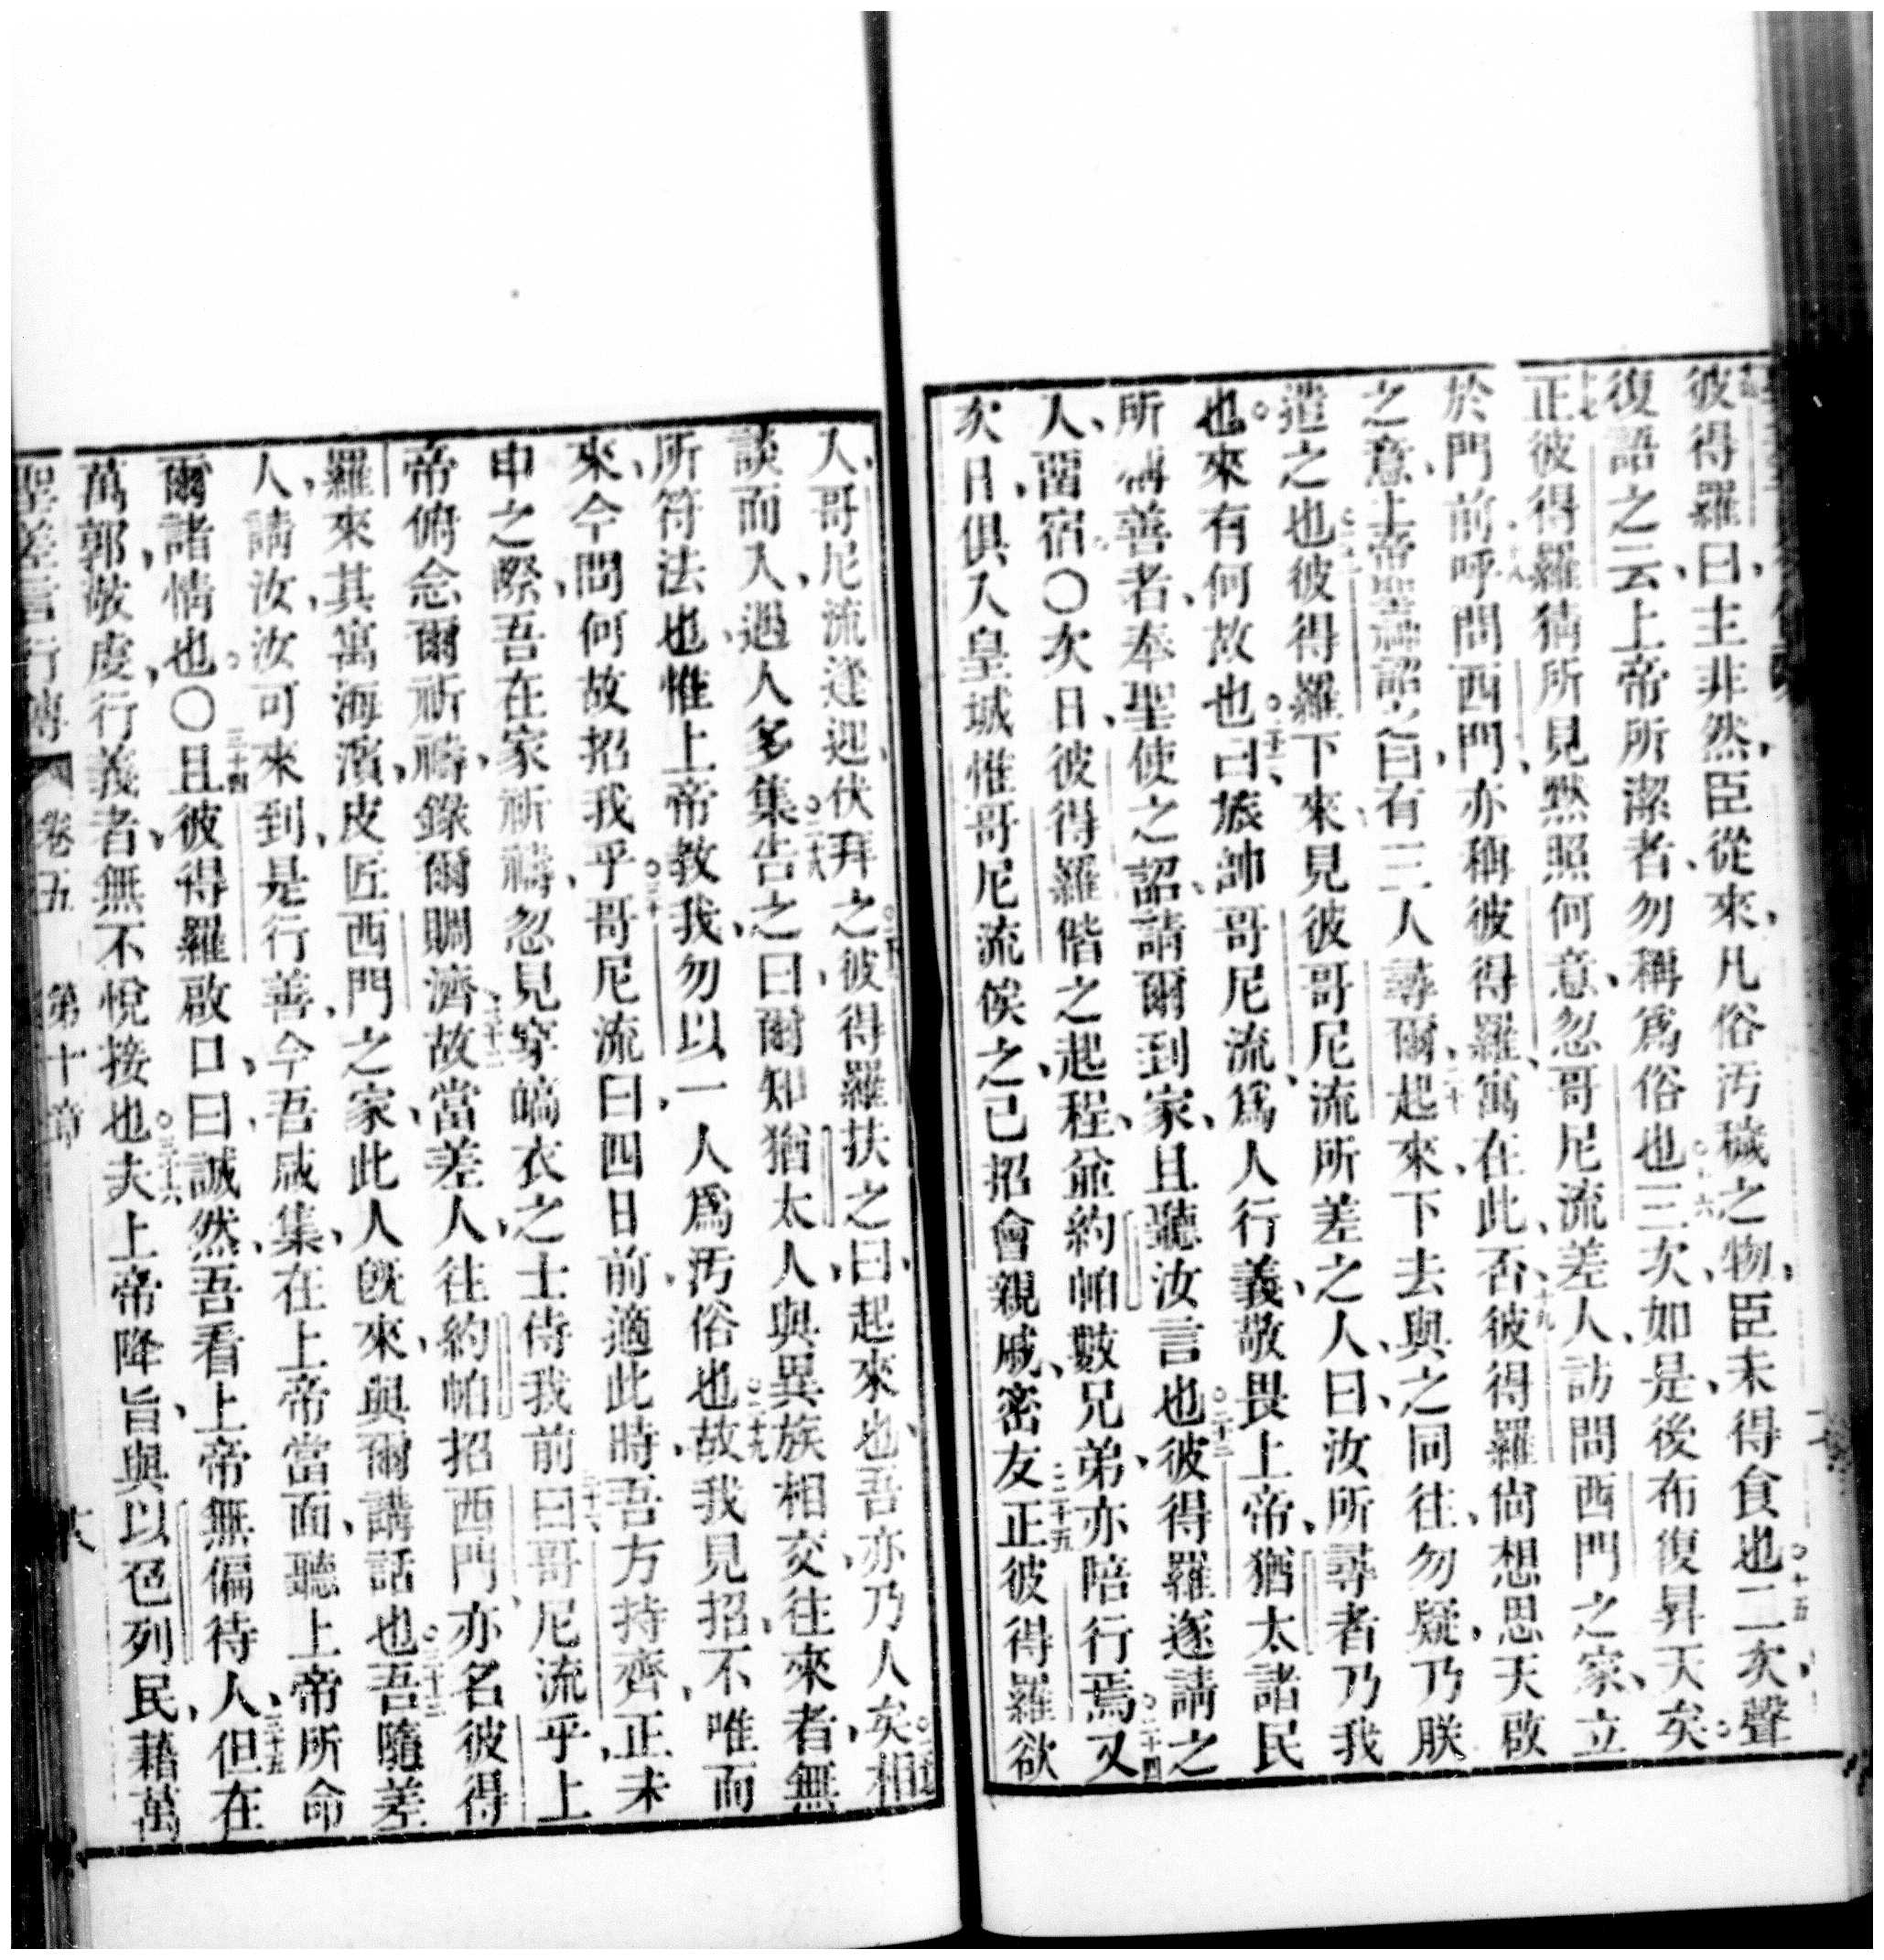 彼得羅曰、主非然、臣從來、凡俗汚穢之物、臣未得食也○十五二次、聲
復語之云、上帝所潔者、勿稱爲俗也○十六三次、如是、後布復昇天矣○
十七正彼得羅猜所見、黙照何意、忽哥尼流差人、訪問西門之家、立
於門前○十八呼問西門、亦稱彼得羅、寓在此否、○十九彼得羅尚想思天啟
之意、上帝聖神諂之曰、有三人尋爾、○二十起來、下去、與之同往、勿疑、乃朕
遣之也○二十一彼得羅下來、見彼哥尼流所差之人、曰、汝所尋者乃我
也○來有何故也○二十二曰、旅帥哥尼流、爲人行義、敬畏上帝、猶太諸民
所稱善者、奉聖使之詔、請爾到家、且聽汝言也○二十三彼得羅遂請之
人、畱宿○〇次日、彼得羅偕之起程、並約帕數兄弟、亦陪行焉○二十四又
次日、俱入皇城惟哥尼流俟之、已招會親戚、密友○二十五正彼得羅欲
入、哥尼流逢迎伏拜之彼得羅扶之曰、起來也、吾亦乃人矣相
談而入、遇人多集○二十八告之曰、爾知猶太人、與異族相交、往來者、無
所符法也、惟上帝教我勿以一人爲汚俗也○二十九故我見招、不唯而
來、今問何故招我乎○三十哥尼流曰、四日前、適此時、吾方持齊、正未
申之際、吾在家祈禱、忽見穿縞衣之士侍我前○三十一曰、哥尼流乎、上
帝俯念爾祈禱、錄爾賙濟、○三十二故當差人、往約帕招西門、亦名彼得
羅來、其寓海濱、皮匠西門之家、此人旣來、與爾講話也○三十三吾隨差
人、請汝、汝可來到、是行善、今吾咸集、在上帝當面、聽上帝所命
爾諸情也○〇三十四且彼得羅啟口曰、誠然、吾看上帝無偏待人、○三十五但在
萬郭、敬虔、行義者、無不悅接也○三十六夫上帝降旨、與以色列民、藉萬
聖差言行傳 卷五 第十章